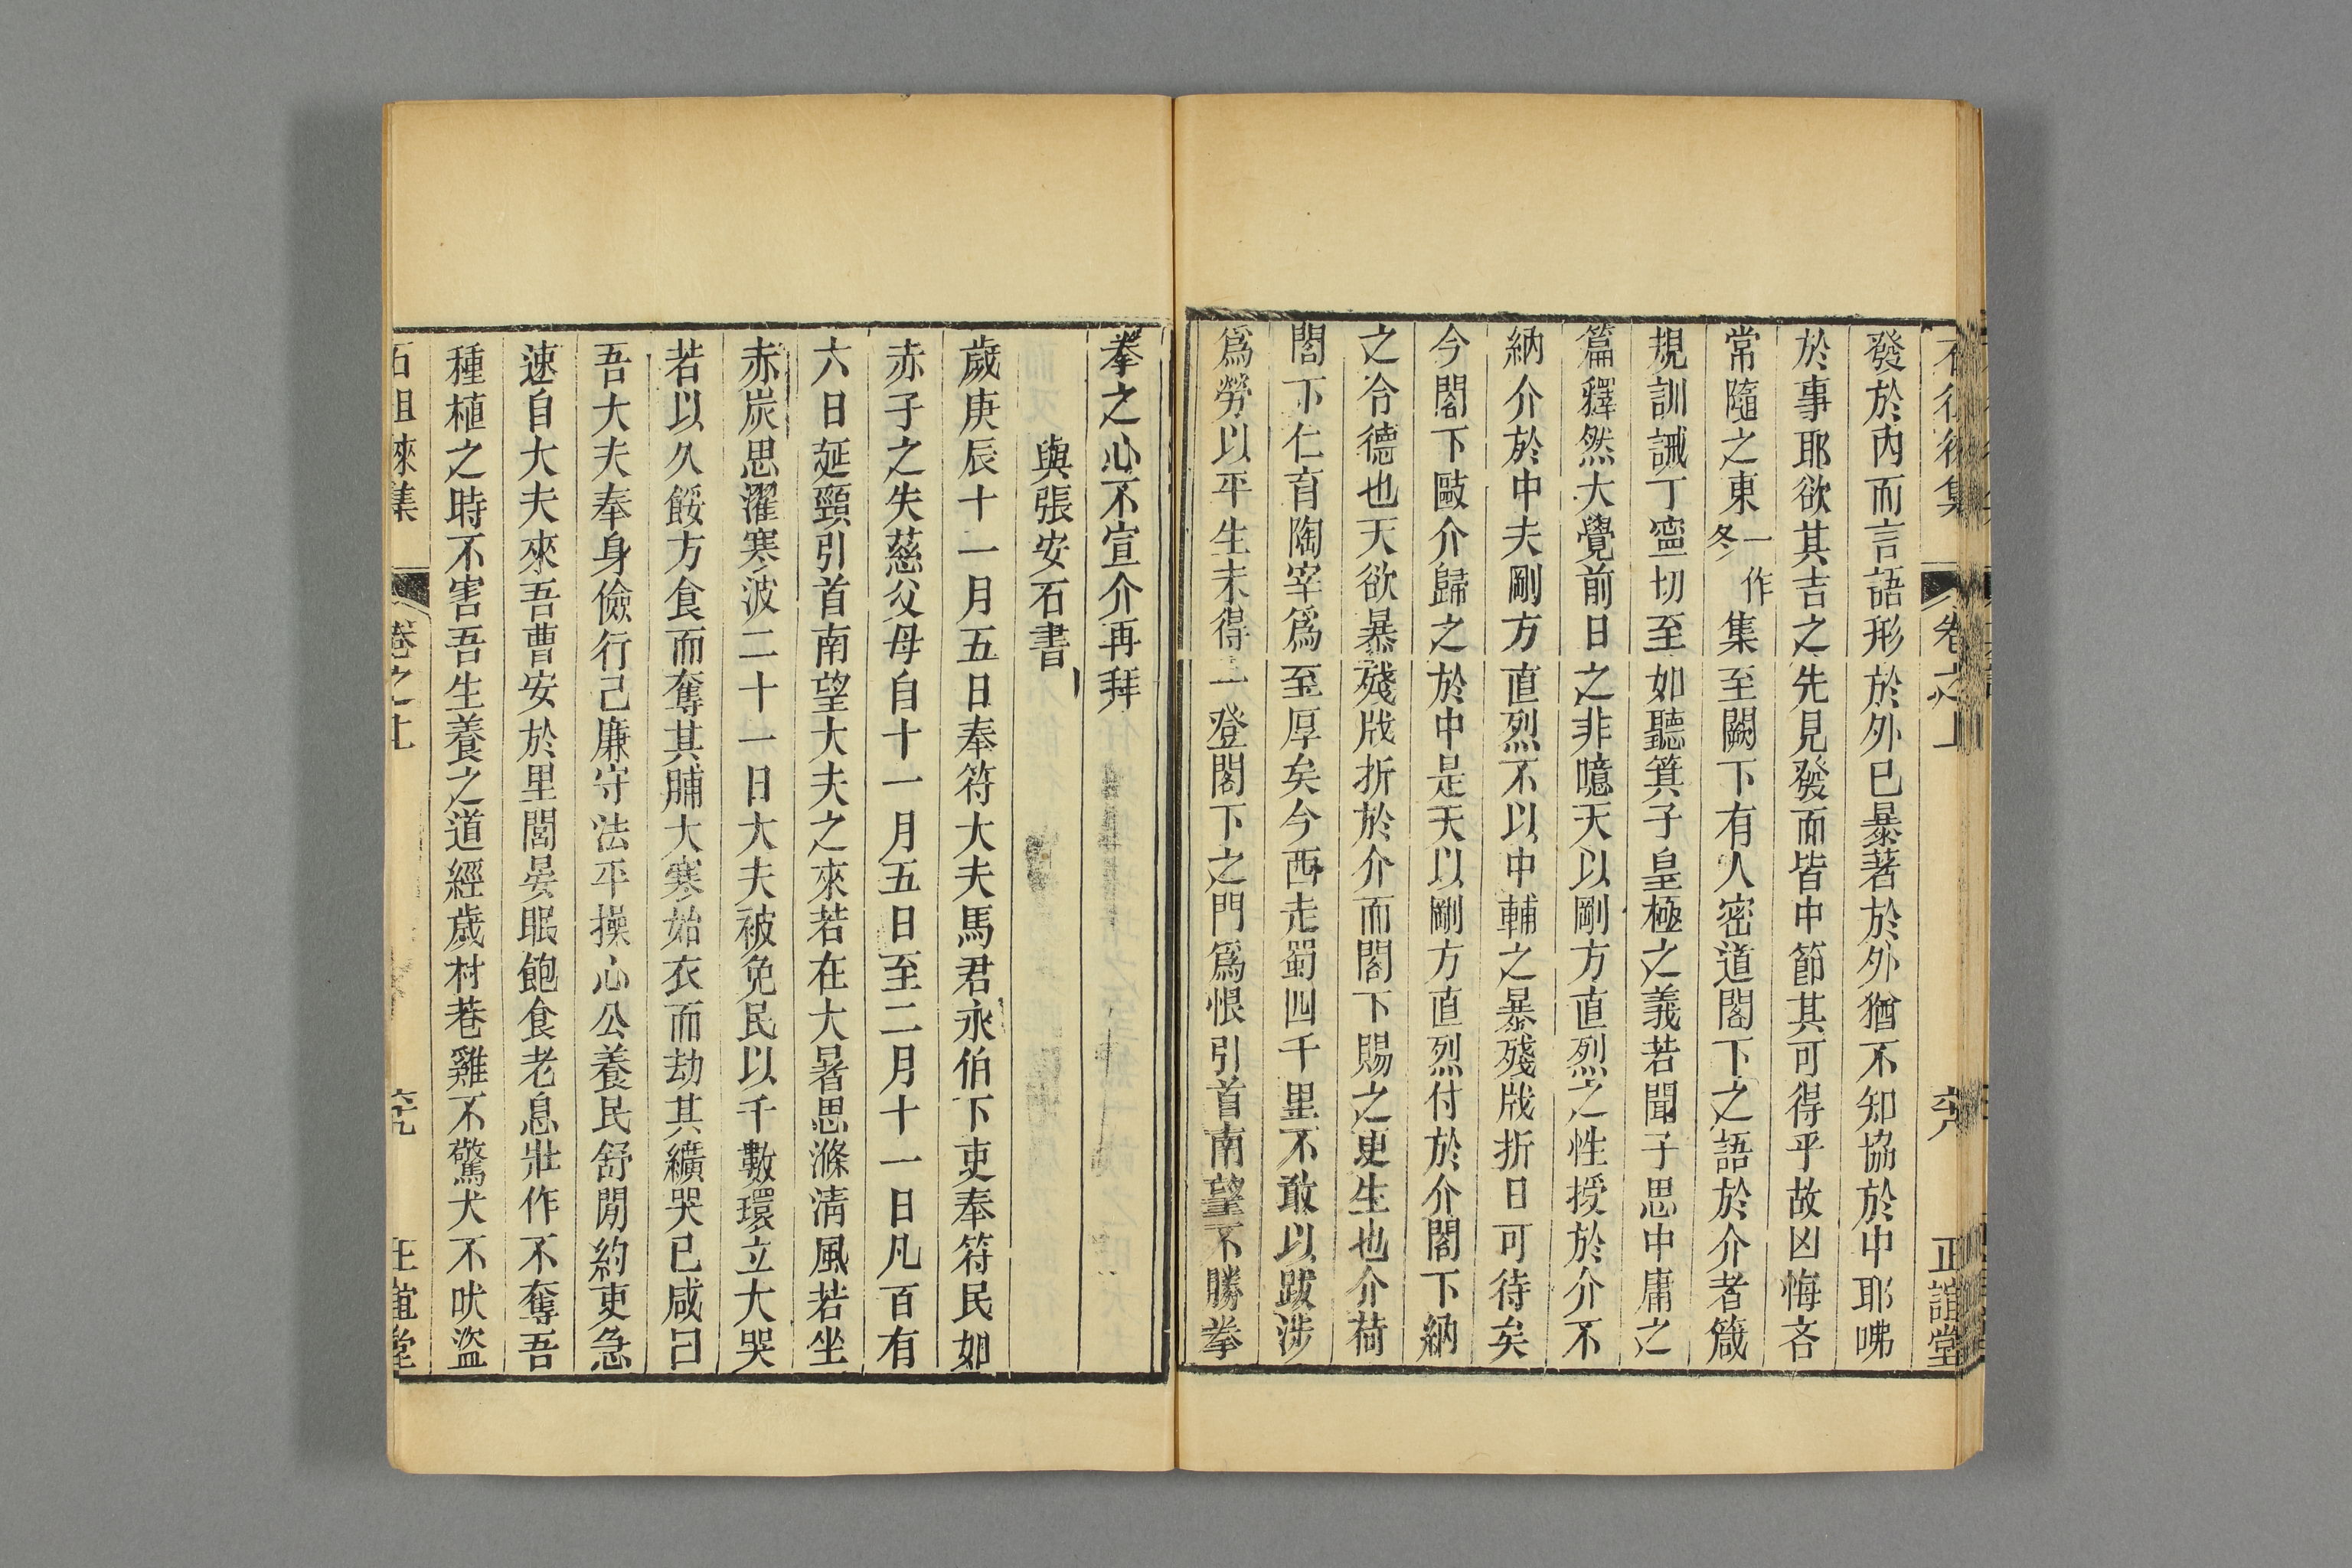 卷之上 正誼堂
發於內而言語形於外已暴著於外猶不知協於中耶咈
於事耶欲其吉之先見發而皆中節其可得乎故凶悔吝
常隨之東一作冬集至闕下有人密道閣下之語於介者箴
規訓誡丁寧切至如聽箕子皇極之義若聞子思中庸之
篇釋然大覺前日之非噫天以剛方直烈之性授於介不
納介於中夫剛方直烈不以中輔之暴殘戕折日可待矣
今閣下敺介歸之於中是天以剛方直烈付於介閣下納
之令德也天欲暴殘戕折於介而閣下賜之更生也介荷
閣下仁育陶宰爲至厚矣今西走蜀四千里不敢以跋涉
爲勞以平生未得一登閣下之門爲恨引首南望不勝拳
拳之心不宣介再拜
與張安石書
歲庚辰十一月五日奉符大夫馬君永伯下吏奉符民如
赤子之失慈父母自十一月五日至二月十一日凡百有
六日延頸引首南望大夫之來若在大暑思滌淸風若坐
赤炭思濯寒波二十一日大夫被免民以千數環立大哭
若以久餒方食而奪其脯大寒始衣而劫其纊哭已咸曰
吾大夫奉身儉行己廉守法平操心公養民舒閒約吏急
速自大夫來吾曹安於里閭晏眠飽食老息壯作不奪吾
種植之時不害吾生養之道經歲村巷雞不驚犬不吠盜
石徂徠集 卷之上 正誼堂